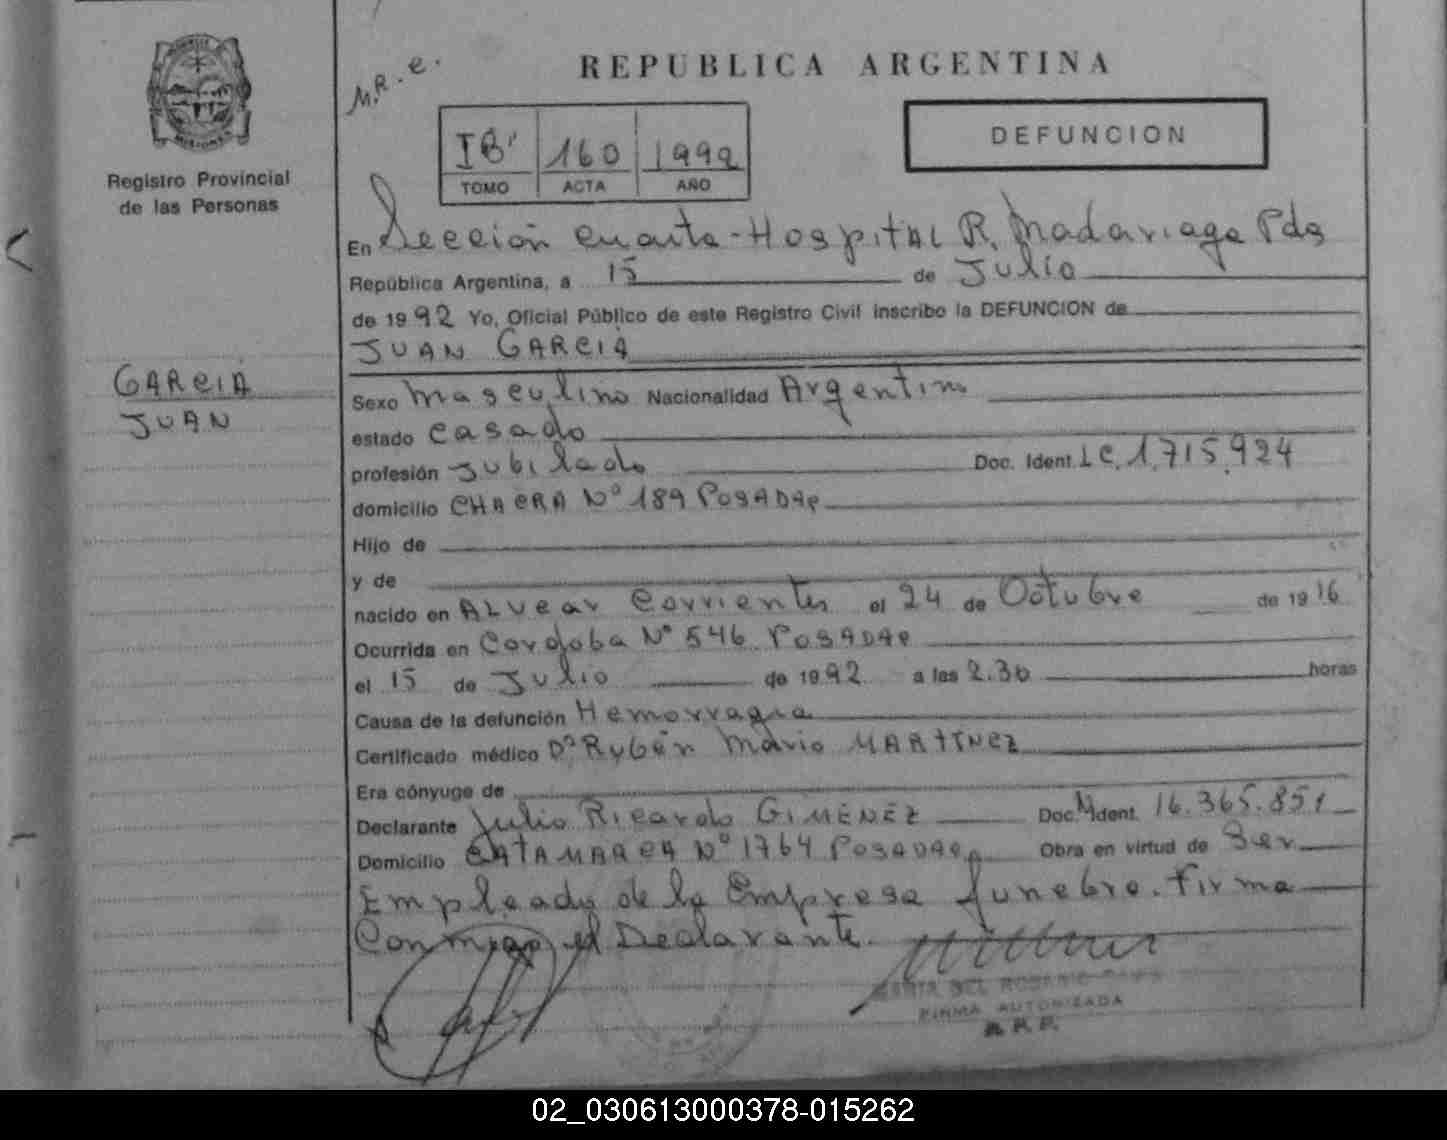 MISIONES
Registro Provincial
de las Personas
GARCIA
JUAN
M.R.e.
REPUBLICA ARGENTINA
IB' 160 1992
TOMO ACTA AÑO
DEFUNCION
En Sección cuarta - Hospital R. Madariaga Pdas
República Argentina, a 15 de Julio
de 1992 Yo, Oficial Público de este Registro Civil inscribo la DEFUNCION de
JUAN GARCIA
Sexo masculino Nacionalidad Argentino
estado casado
profesión Jubilado Doc. Ident. LC. 1.715.924
domicilio CHACRA Nº 189 POSADAS
Hijo de
y de
nacido en ALVear Corrientes el 24 de Octubre de 1916
Ocurrida en Cordoba Nº 546 POSADAS
el 15 de Julio de 1992 a las 2.30 horas
Causa de la defunción Hemorragia
Certificado médico Dº Rubén Mario MARTINEZ
Era cónyuge de
Declarante Julio Ricardo GIMÉNEZ Doc. N Ident. 16.365.851
Domicilio CATAMARCA Nº 1764 POSADAS Obra en virtud de Ser
Empleado de la Empresa funebre. Firma
Conmigo el Declarante.
MARIA DEL ROSARIO
FIRMA AUTORIZADA
R.P.P.
02_030613000378-015262